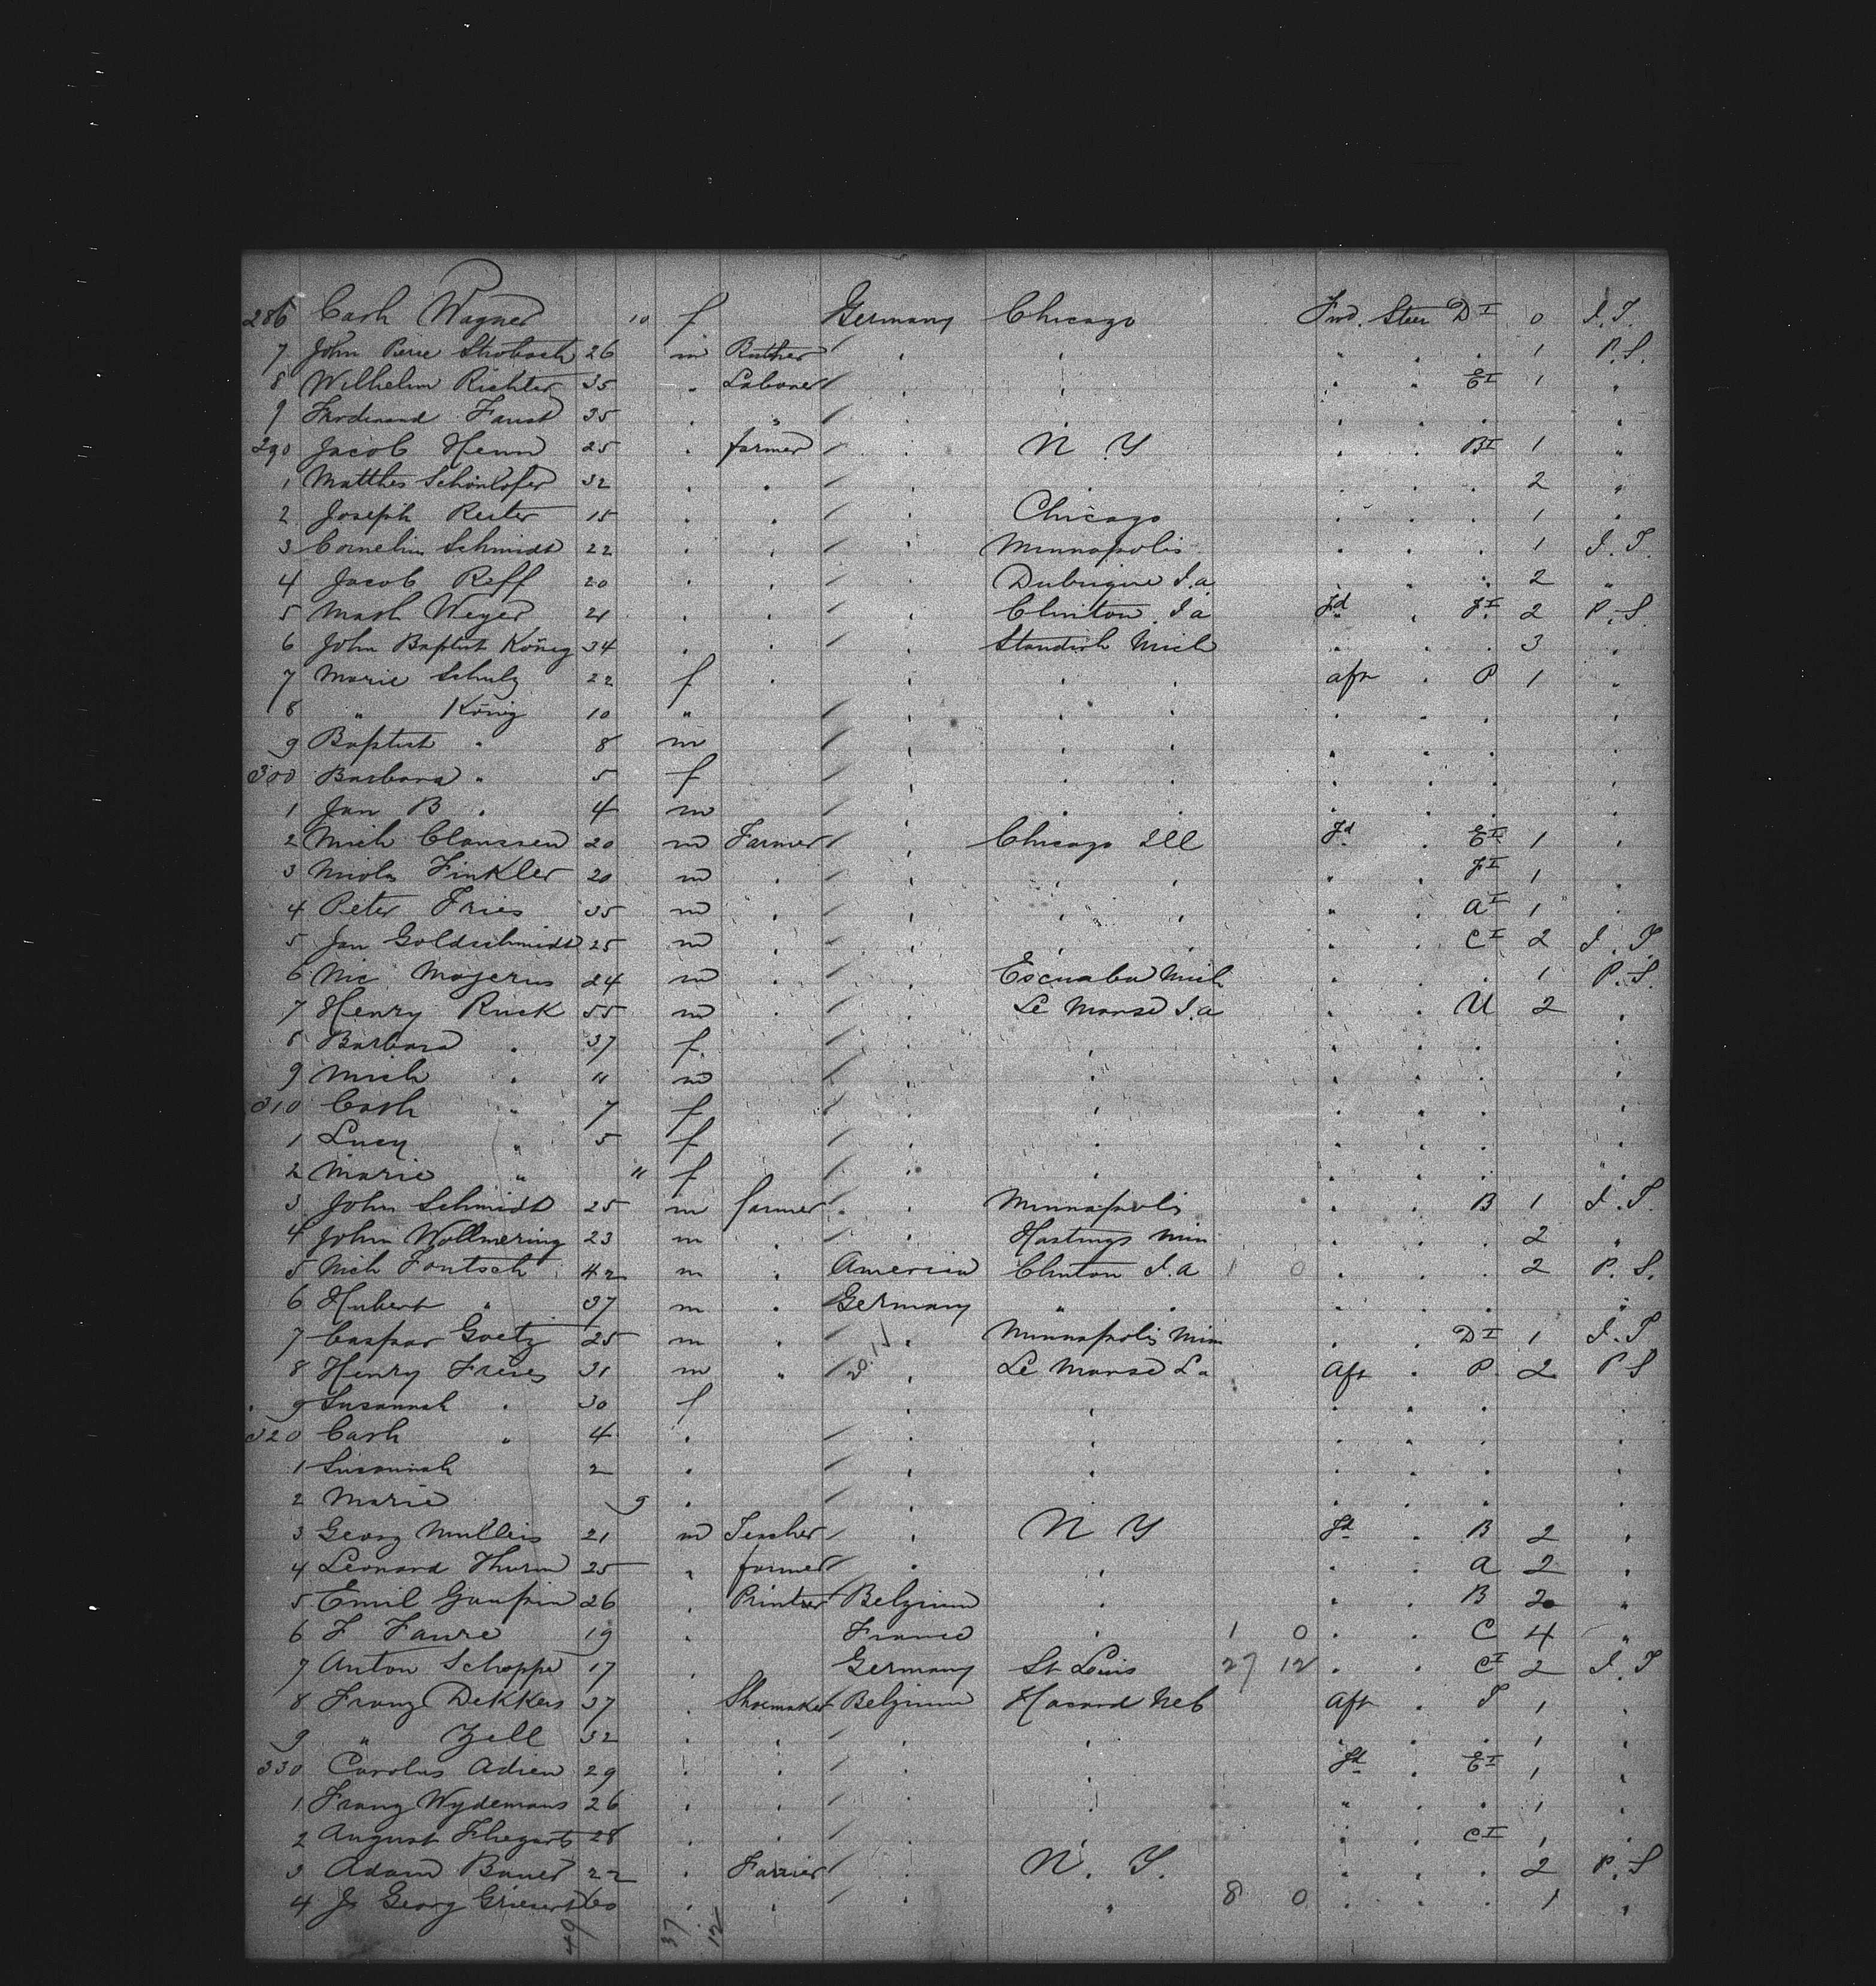 286 Cath Wagner 10 f Germany Chicago Fwd. Steer D I 0 I. T.
7 John Pierre Strobach 26 m " " " " " " 1 P. S.
8 Wilhelm Richter 35 " Laborer " " " " E I 1 "
9 Ferdinand Faust 35 " " " " " " " "
290 Jacob Henn 25 " farmer " N Y " " B I 1 "
1 Matthes Schönhofer 32 " " " " " " " 2 "
2 Joseph Reiter 15 " " " Chicago " " " 1 "
3 Cornelius Schmidt 22 " " " Minnapolis " " " 1 I. T.
4 Jacob Reff 20 " " " Dubuque I.a " " " 2 "
5 Math Weyer 21 " " " Clinton I.a Fd " F I 2 P. S.
6 John Baptist König 34 " " " Standish Mich " " " 3 "
7 Marie Schulz 22 f " " " " aft " P 1 "
8 " König 10 " " " " " " " "
9 Baptist " 8 m " " " " " " "
300 Barbara " 5 f " " " " " " "
1 Jan B " 4 m " " " " " " "
2 Mich Claussen 20 m Farmer " Chicago Ill Fd " E I 1 "
3 Nicolas Finkler 20 m " " " " " " F I 1 "
4 Peter Fries 35 m " " " " " " A I 1 "
5 Jan Goldschmidt 25 m " " " " " " C I 2 I. T.
6 Nic Majerus 24 m " " Escnaba Mich " " " 1 P. S.
7 Henry Ruck 55 m " " Le Marse I.a " " U 2 "
8 Barbara " 37 f " " " " "
9 Mich " 11 m " " " " " "
310 Cath " 7 f " " " " " "
1 Lucy " 5 f " " " " " "
2 Marie " 11 f " " " " " "
3 John Schmidt 25 m farmer " Minnapolis " " B 1 I. T.
4 John Wollmering 23 m " " Hastings Min " " " 2 "
5 Nich Fontsch 42 m " America Clinton I.a 1 0 " " " 2 P. S.
6 Hubert " 37 m " Germany " " " " " "
7 Caspar Goetz 25 m " " Minnapolis Min " " D I 1 I. T
8 Henry Freres 31 m " " Le Marse I.a Aft " P 2 P S
9 Susannah " 30 f " " " " " "
320 Cath " 4 " " " " " " "
1 Susannah 2 " " " " " " "
2 Marie 9 " " " " " " "
3 Georg Mulleis 21 m Teacher " N Y Fd " B 2 "
4 Leonard Thurm 25 " farmer " " " " A 2 "
5 Emil 26 " Printer Belgium " " " B 2 "
6 F Faure 19 " France " 1 0 " " C 4 "
7 Anton Schoppe 17 " Germany St Louis 27 12 " " C I 2 I. T
8 Franz Dekkers 37 " Shoemaker Belgium Havard Neb Aft " T 1 "
9 " Zell 32 " " " " " " " 1 "
330 Carolus Adrien 29 " " " " Fd " E I 1 "
1 Franz Wydemans 26 " " " " " " " 1 "
2 August 28 " " " " " " C I 1 "
3 Adam Bauer 22 " " N. Y. " " " 2 P. S
4 Georg 60 " " " " 8 0 " " " 1 "
49 37 12